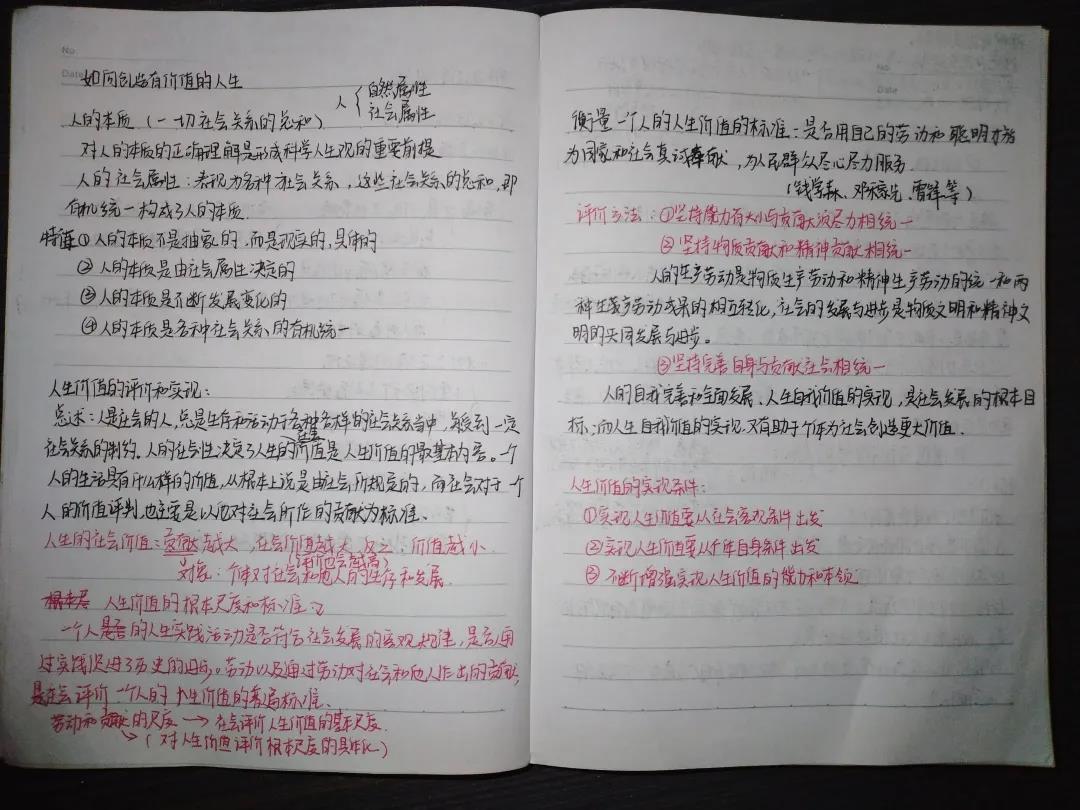 No.
Date
如何创造有价值的人生
人的本质（一切社会关系的总和）
人 { 自然属性
社会属性
对人的本质的正确理解是形成科学人生观的重要前提
人的社会属性：表现为各种社会关系，这些社会关系的总和，即
有机统一构成了人的本质.
特征①人的本质不是抽象的，而是现实的，具体的
②人的本质是由社会属性决定的
③人的本质是不断发展变化的
④人的本质是各种社会关系的有机统一
人生价值的评价和实现：
总述：人是社会的人，总是生存和活动于各种各样的社会关系当中，总受到一定
社会关系的制约。人的社会性决定了人生的社会价值是人生价值的最基本内容。一个
人的生活具有什么样的价值，从根本上说是由社会所规定的，而社会对于一个
人的价值评判，也主要是以他对社会所作的贡献为标准、
人生的社会价值：贡献越大，社会价值越大，反之，价值越小
(评价也会越高)
对象：个体对社会和他人的生存和发展.
人生价值的根本尺度和标准
一个人的人生实践活动是否符合社会发展的客观规律，是否用
过实践促进了历史的进步。劳动以及通过劳动对社会和他人作出的贡献，
是社会评价一个人的人生价值的普遍标准.
劳动和贡献的尺度 → 社会评价人生价值的基本尺度.
↘（对人生价值评价根本尺度的具体化）
No.
Date
衡量一个人的人生价值的标准：是否用自己的劳动和聪明才智
为国家和社会真诚奉献，为人民群众尽心尽力服务.
（钱学森、邓稼先、雷锋等）
评价方法：①坚持能力有大小与贡献大须尽力相统一
②坚持物质贡献和精神贡献相统一
人的生产劳动是物质生产劳动和精神生产劳动的统一和两
种生产劳动成果的相互转化，社会的发展与进步是物质文明和精神文
明的共同发展与进步。
③坚持完善自身与贡献社会相统一
人的自我完善和全面发展、人生自我价值的实现，是社会发展的根本目
标；而人生自我价值的实现，又有助于个体为社会创造更大价值.
人生价值的实现条件：
①实现人生价值要从社会客观条件出发
②实现人生价值要从个体自身条件出发
③不断增强实现人生价值的能力和本领